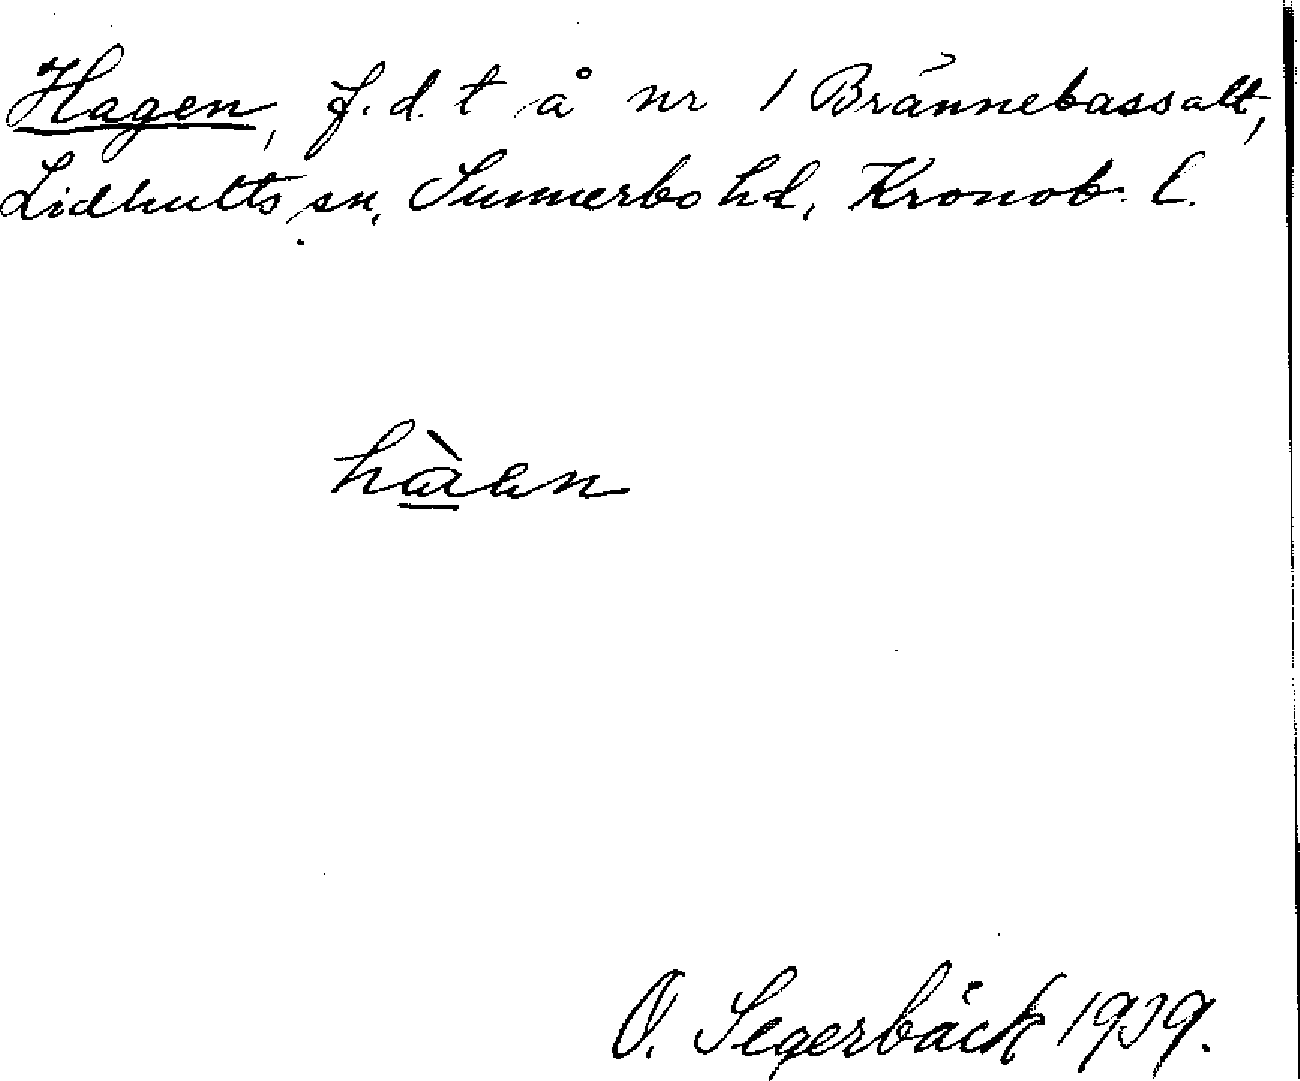 Hagen, f.d. t å nr 1 Brännebassalt,
Lidhults sn, Sunnerbo hd, Kronob. l.
hàen
O. Segerbäck 1939.